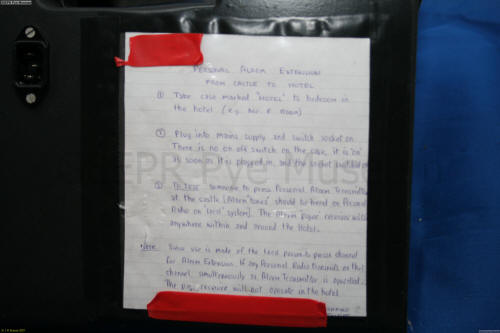 PERSONAL ALARM EXTENSION
FROM CASTLE TO HOTEL
① Take case marked 'HOTEL' to bedroom in
the hotel. (e.g. No. 8 Room)
Plug into mains supply and switch socket on.
There is no on off switch on the case, it is 'on'
as soon as it is plugged in, and the socket switched
③ TO TEST Someone to press Personal Alarm Transmitter
at the castle [Alarm 'tones' should be heard on Personal
Radio on local system]. The Alarm pager receiver will
anywhere within and around the Hotel.
Note. Some use is made of the
for Alarm Extension. If any Personal Radio transmits on this
channel, simultaneously as Alarm Transmitter is operated,
The receiver will not operate in the hotel
EPR Pye Muse